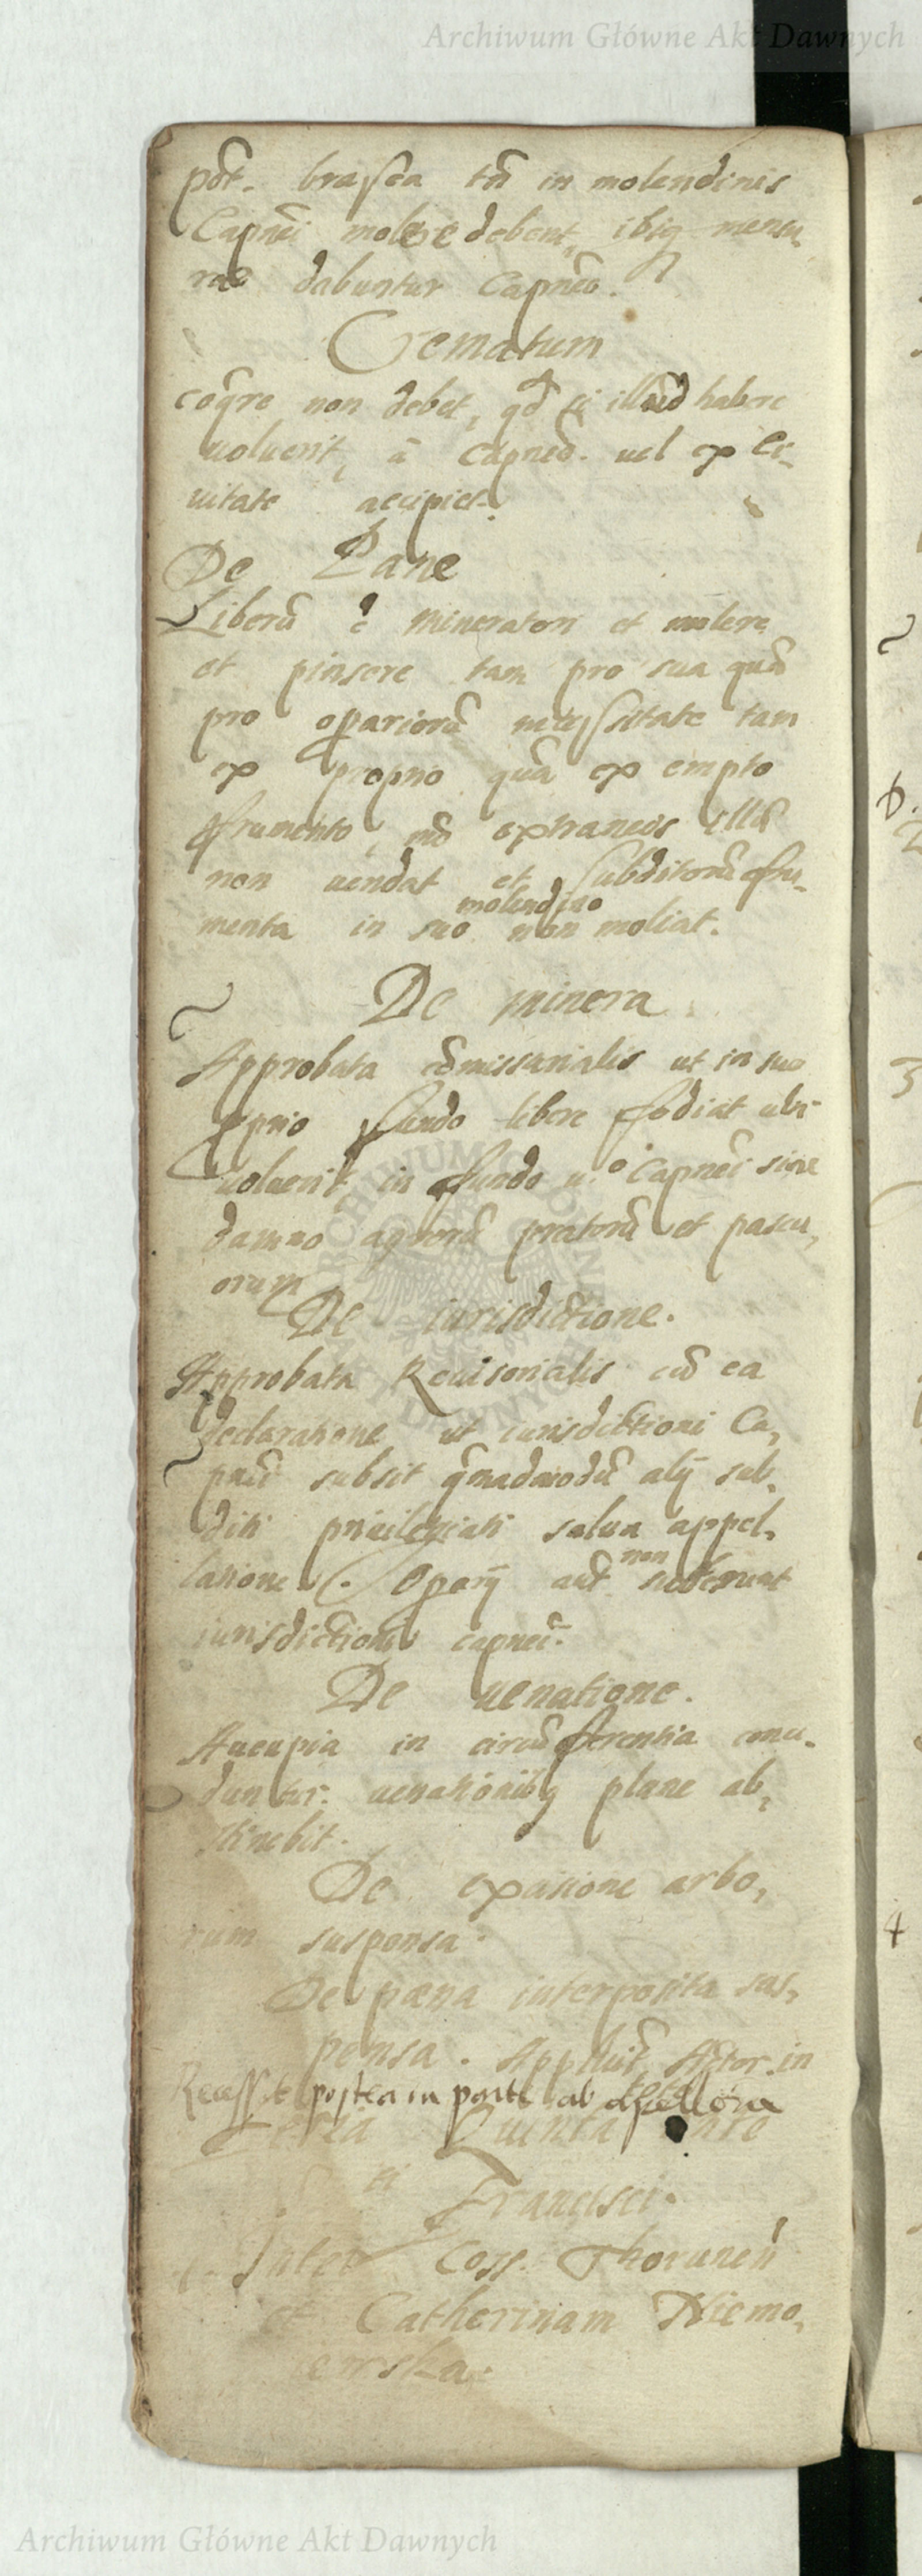 Archiwum Główne Akt Dawnych
pōt. brasea tn̄ in molendinis
Capnei molere debent, ibiq mensu,
rae dabuntur Capneo.
Crematum
coqre non debet, qd si illud habere
uoluerit, à Capneo. uel ex Ci,
uitate accipiet.
De Pane
Liberū ē mineratori et molere
et pinsere tam pro sua quā
pro opariorū necessitate tam
ex proprio quā ex empto
frumento, extraneis illū
non uendat et subditorū fru,
molendino
menta in suo non moliat.
De minera
Approbata cōmissarialis ut in suo
pprio fundo libere fodiat ubi
uoluerit, in fundo u.º Capnei sine
damno agrorū pratorū et pascu,
orum
De iurisdictione.
Approbata Reuisorialis cū ea
declaratione ut iurisdictioni Ca,
pnei subsit qmadmodū alij sub,
diti priuilegiati salua appel,
non
latione. Oparij aut suberunt
iurisdictioni capnei.
De uenatione.
Aucupia in circūferentia conce,
duntur. uenationibq plane ab,
stinebit.
De exasione arbo,
rum suspensa.
De pœna interposita sus,
pensa. Appellauit Actor in
Recessit postea in parte ab
Feria Quinta ante
Francisci.
Inter Coss. Thorunen
et Catherinam Niemo,
iewska.
Archiwum Główne Akt Dawnych